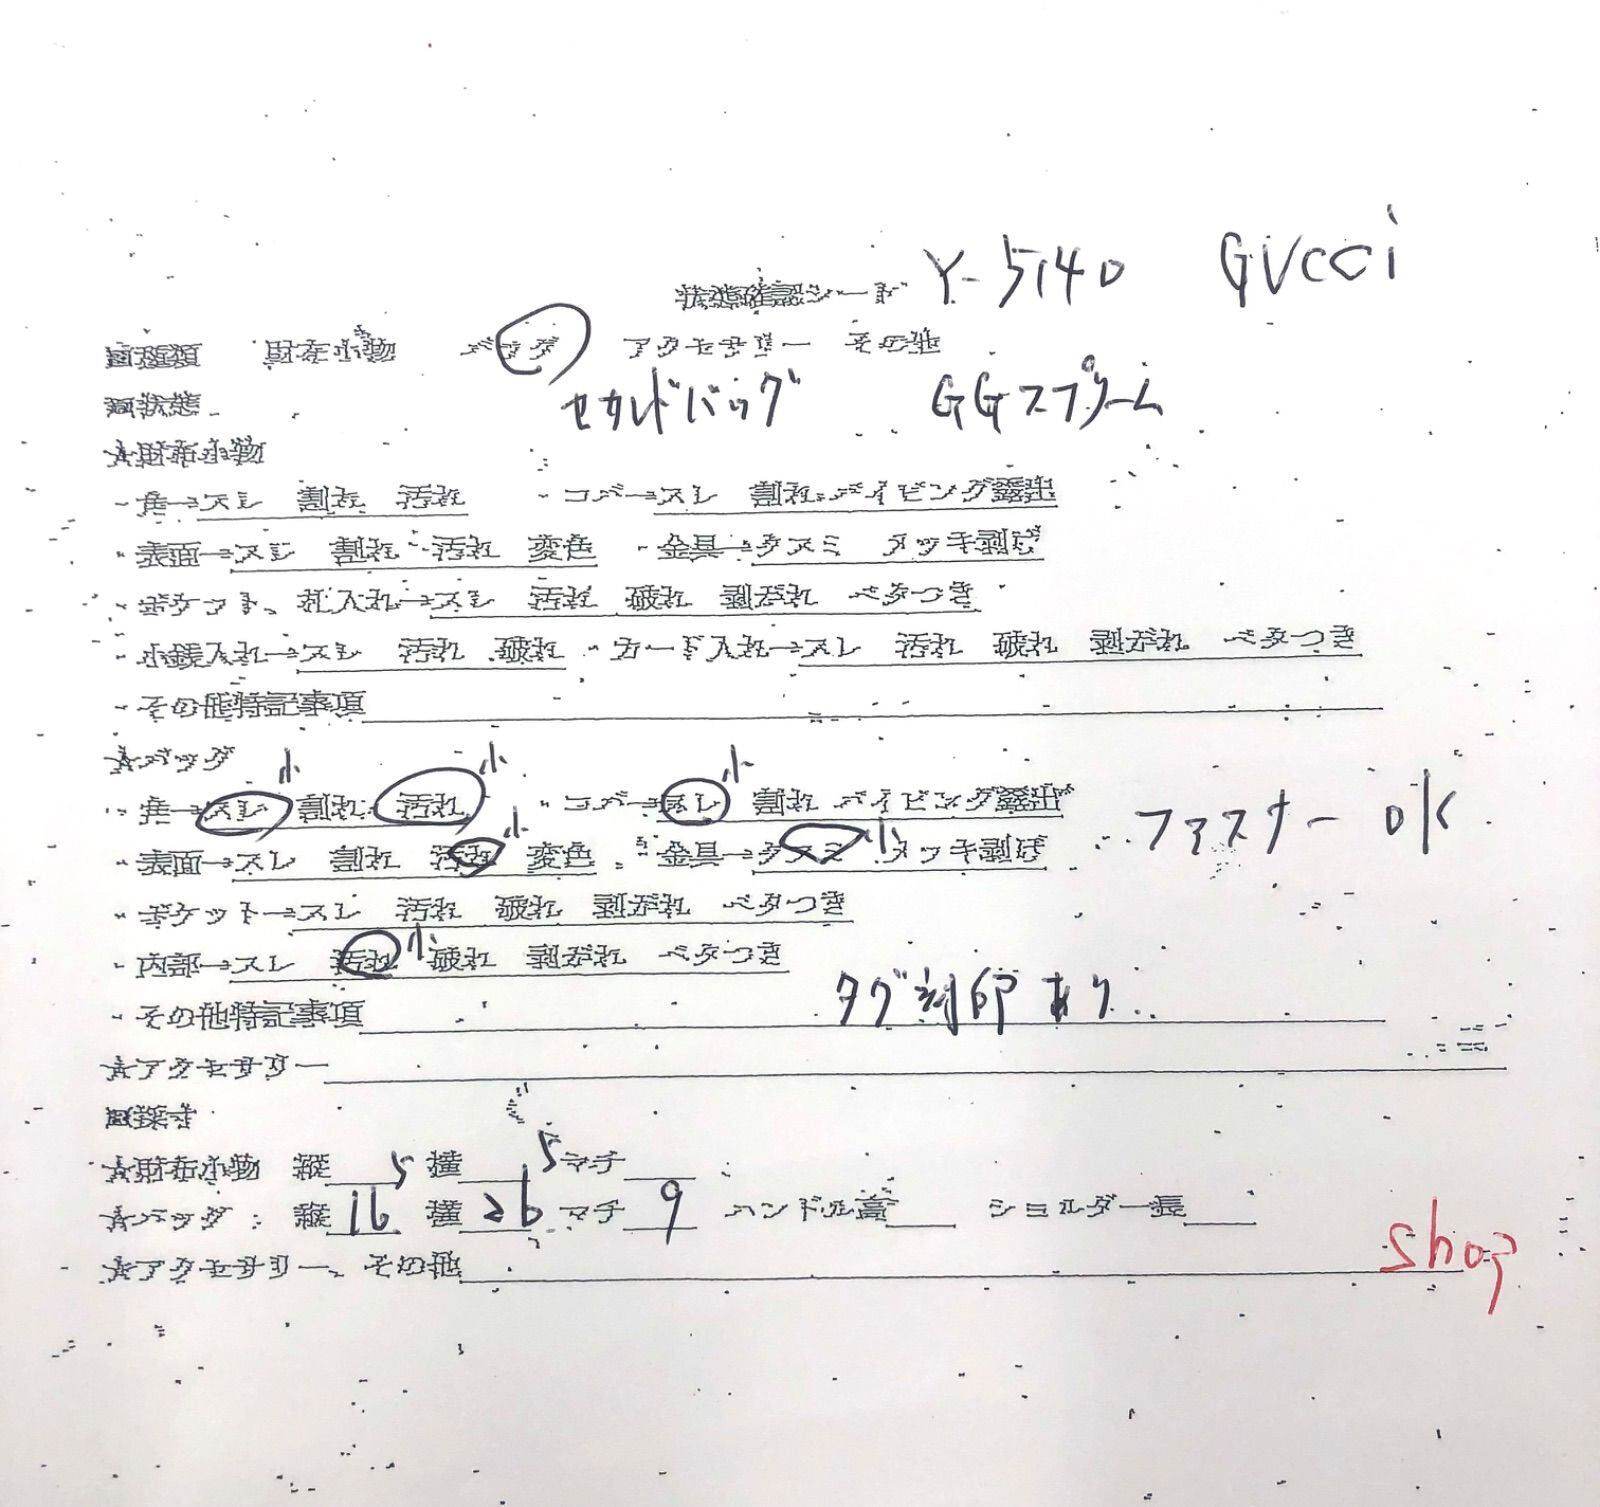 状態確認シート Y-5140 GUCCI
■種類 財布小物 バッグ アクセサリー その他
■状態 セカンドバッグ GGスプリーム
★財布小物
・角→スレ 割れ 汚れ ・コバ→スレ 割れ パイピング露出
・表面→スレ 割れ 汚れ 変色 ・金具→クスミ メッキ剥げ
・ポケット、札入れ→スレ 汚れ 破れ 剥がれ ベタつき
・小銭入れ→スレ 汚れ 破れ ・カード入れ→スレ 汚れ 破れ 剥がれ ベタつき
・その他特記事項
★バッグ
小 小 小
・角→スレ 割れ 汚れ ・コバ→スレ 割れ パイピング露出 ファスナー OK
・表面→スレ 割れ 汚れ 小 変色 ・金具→クスミ 小 メッキ剥げ
・ポケット→スレ 汚れ 破れ 剥がれ ベタつき
・内部→スレ 汚れ 小 破れ 剥がれ ベタつき
・その他特記事項 タグ刻印あり
★アクセサリー
■採寸
★財布小物 縦 横 マチ
5 5
★バッグ 縦 16 横 26 マチ 9 ハンドル高 ショルダー長
★アクセサリー、その他 shop